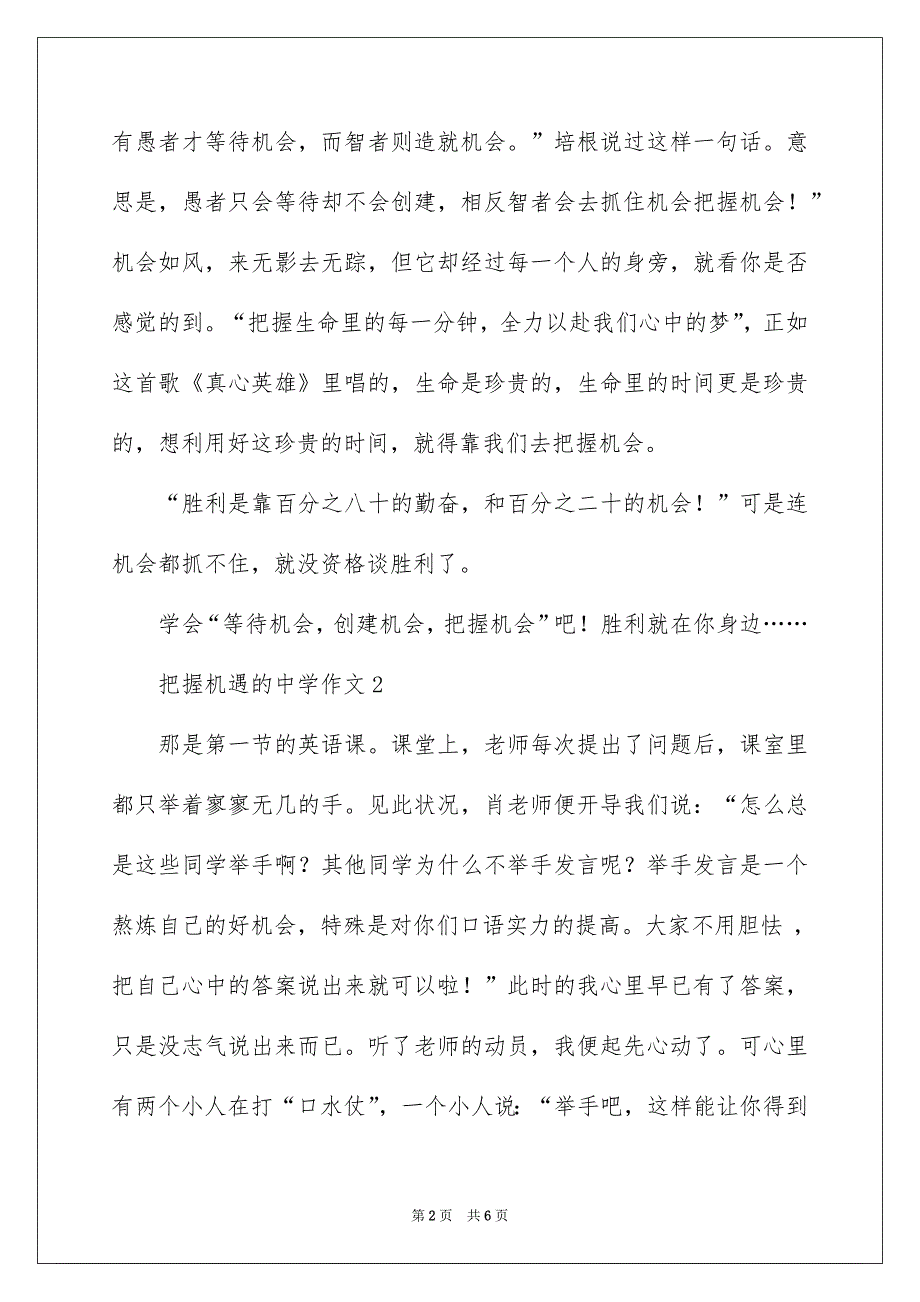 有愚者才等待机会，而智者则造就机会。”培根说过这样一句话。意
思是，愚者只会等待却不会创建，相反智者会去抓住机会把握机会！”
机会如风，来无影去无踪，但它却经过每一个人的身旁，就看你是否
感觉的到。“把握生命里的每一分钟，全力以赴我们心中的梦”，正如
这首歌《真心英雄》里唱的，生命是珍贵的，生命里的时间更是珍贵
的，想利用好这珍贵的时间，就得靠我们去把握机会。
“胜利是靠百分之八十的勤奋，和百分之二十的机会！”可是连
机会都抓不住，就没资格谈胜利了。
学会“等待机会，创建机会，把握机会”吧！胜利就在你身边……
把握机遇的中学作文2
那是第一节的英语课。课堂上，老师每次提出了问题后，课室里
都只举着寥寥无几的手。见此状况，肖老师便开导我们说：“怎么总
是这些同学举手啊？其他同学为什么不举手发言呢？举手发言是一个
熬炼自己的好机会，特殊是对你们口语实力的提高。大家不用胆怯 ，
把自己心中的答案说出来就可以啦！”此时的我心里早已有了答案，
只是没志气说出来而已。听了老师的动员，我便起先心动了。可心里
有两个小人在打“口水仗”，一个小人说：“举手吧，这样能让你得到
第 2 页 共 6 页